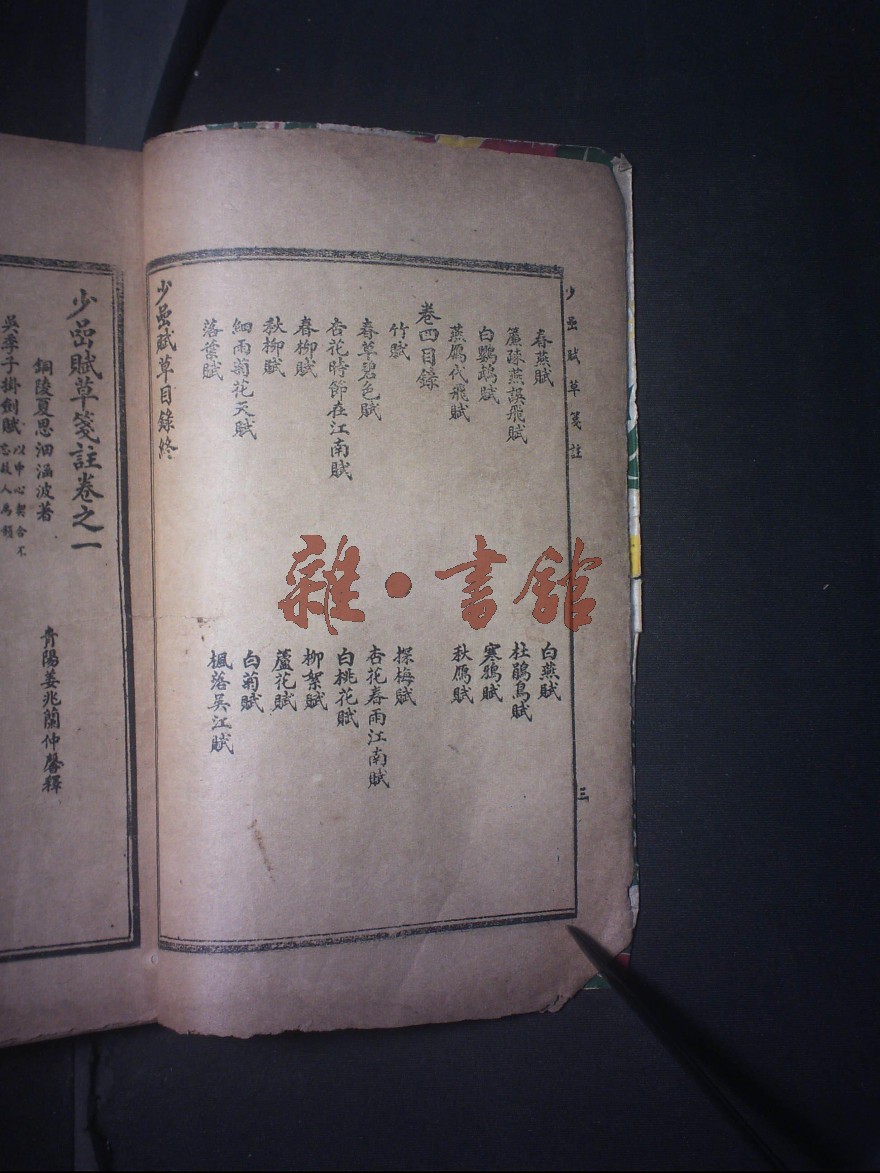 少嵒賦草箋註
三
春燕賦
白燕賦
簾疎燕誤飛賦
杜鵑鳥賦
白鸚鵡賦
寒鴉賦
燕鴈代飛賦
秋鴈賦
卷四目錄
竹賦
探梅賦
春草碧色賦
杏花春雨江南賦
杏花時節在江南賦
白桃花賦
春柳賦
柳絮賦
秋柳賦
蘆花賦
細雨菊花天賦
白菊賦
落葉賦
楓落吳江賦
少嵒賦草目錄終
少嵒賦草箋註卷之一
銅陵夏思沺涵波著
青陽姜兆蘭仲馨釋
吳季子掛劍賦
以中心契合不
忘故人為韻
雜·書館